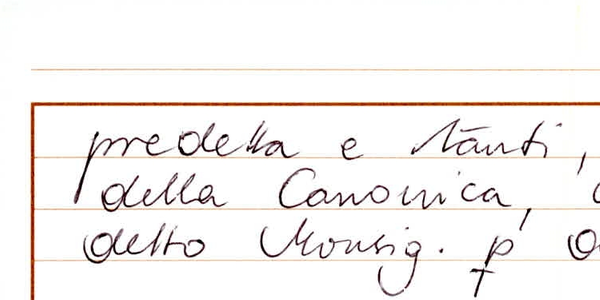 predetta e tānti,
della Canonica,
detto Monsig. p